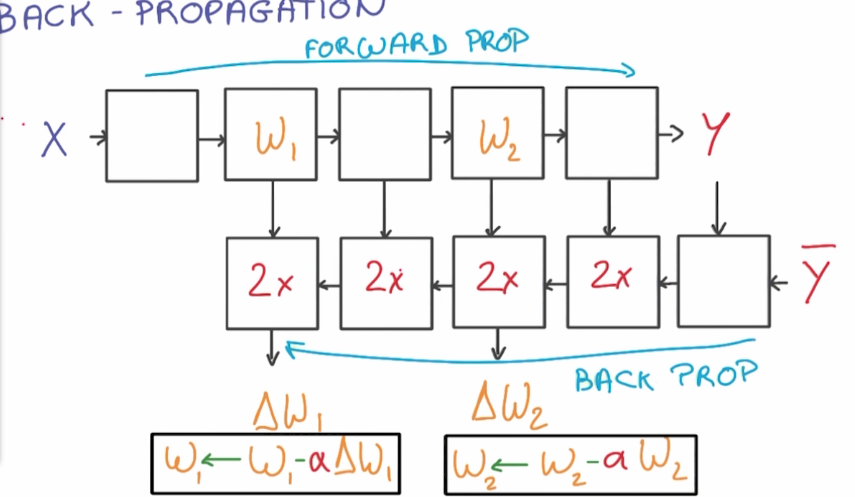 BACK - PROPAGATION
FORWARD PROP
X W₁ W₂ Y
2x 2x 2x 2x Ȳ
BACK PROP
ΔW₁ ΔW₂
W₁ ← W₁ - α ΔW₁
W₂ ← W₂ - α W₂